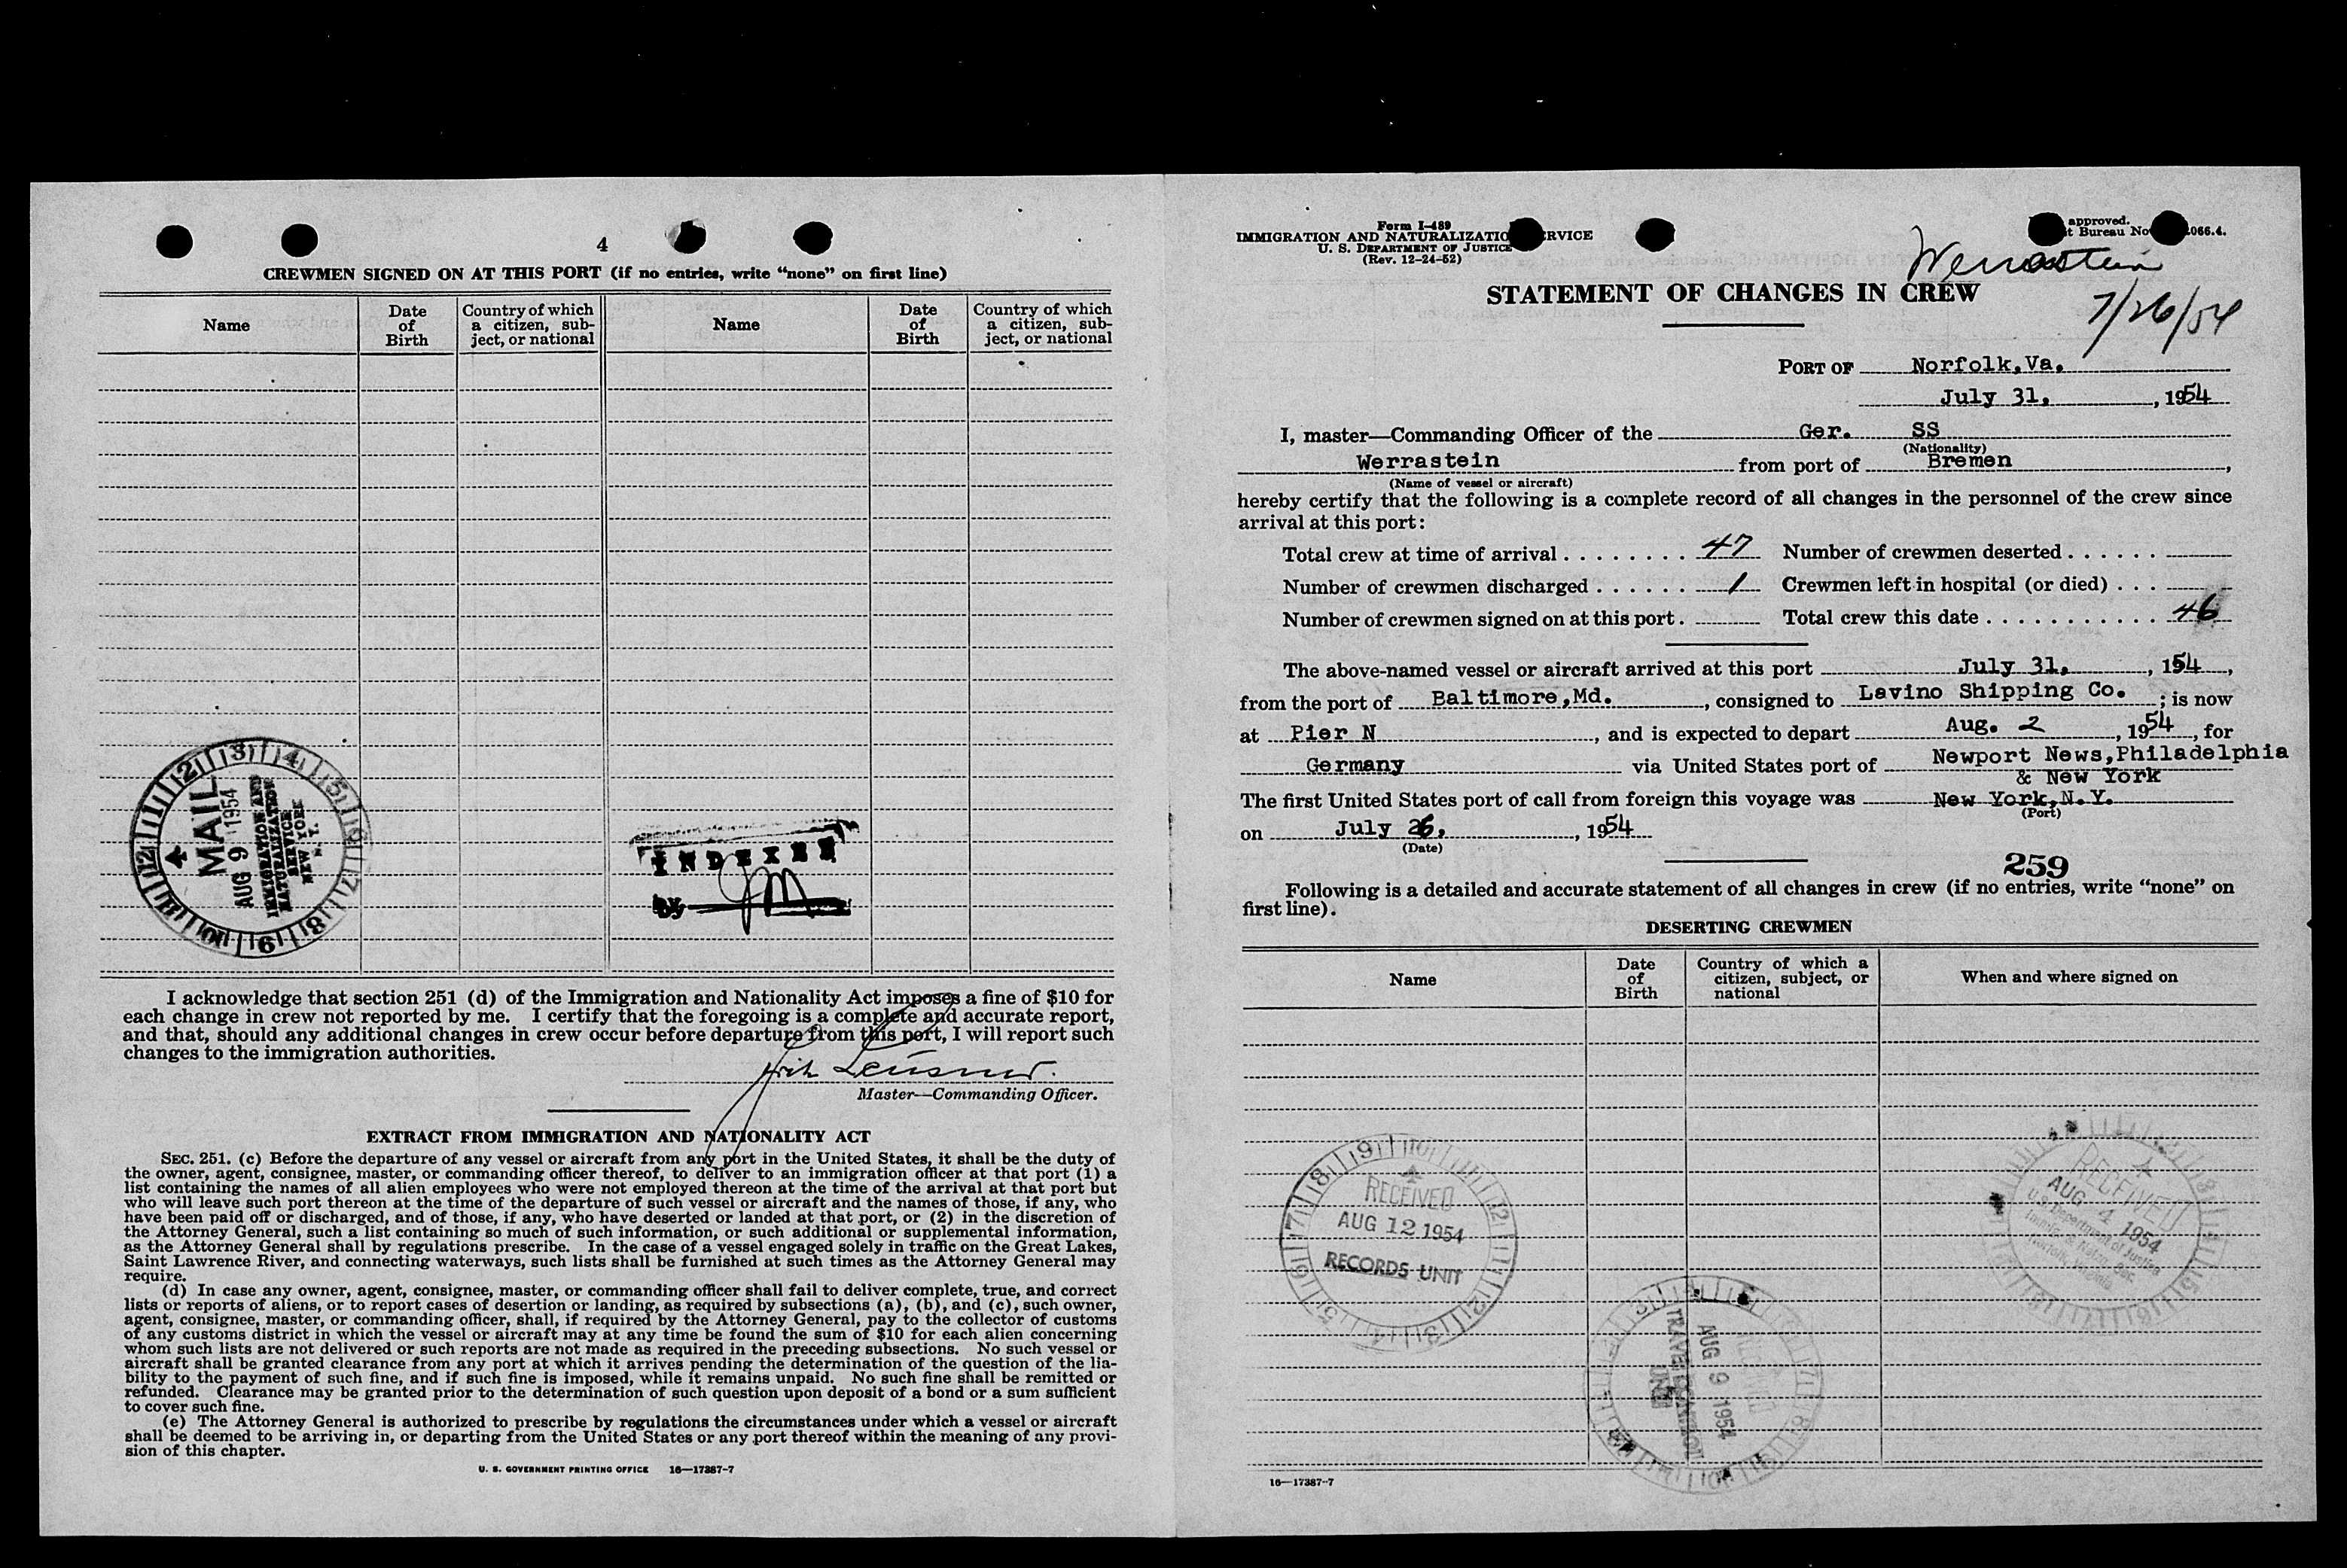 4
CREWMEN SIGNED ON AT THIS PORT (if no entries, write “none” on first line)
Name
Date of Birth
Country of which a citizen, sub-ject, or national
Name
Date of Birth
Country of which a citizen, sub-ject, or national
MAIL
AUG 9 1954
IMMIGRATION AND
NATURALIZATION
SERVICE
NEW YORK
N. Y.
INDEXED
by JM
I acknowledge that section 251 (d) of the Immigration and Nationality Act imposes a fine of $10 for
each change in crew not reported by me. I certify that the foregoing is a complete and accurate report,
and that, should any additional changes in crew occur before departure from this port, I will report such
changes to the immigration authorities.
Master—Commanding Officer.
EXTRACT FROM IMMIGRATION AND NATIONALITY ACT
SEC. 251. (c) Before the departure of any vessel or aircraft from any port in the United States, it shall be the duty of
the owner, agent, consignee, master, or commanding officer thereof, to deliver to an immigration officer at that port (1) a
list containing the names of all alien employees who were not employed thereon at the time of the arrival at that port but
who will leave such port thereon at the time of the departure of such vessel or aircraft and the names of those, if any, who
have been paid off or discharged, and of those, if any, who have deserted or landed at that port, or (2) in the discretion of
the Attorney General, such a list containing so much of such information, or such additional or supplemental information,
as the Attorney General shall by regulations prescribe. In the case of a vessel engaged solely in traffic on the Great Lakes,
Saint Lawrence River, and connecting waterways, such lists shall be furnished at such times as the Attorney General may
require.
(d) In case any owner, agent, consignee, master, or commanding officer shall fail to deliver complete, true, and correct
lists or reports of aliens, or to report cases of desertion or landing, as required by subsections (a), (b), and (c), such owner,
agent, consignee, master, or commanding officer, shall, if required by the Attorney General, pay to the collector of customs
of any customs district in which the vessel or aircraft may at any time be found the sum of $10 for each alien concerning
whom such lists are not delivered or such reports are not made as required in the preceding subsections. No such vessel or
aircraft shall be granted clearance from any port at which it arrives pending the determination of the question of the lia-
bility to the payment of such fine, and if such fine is imposed, while it remains unpaid. No such fine shall be remitted or
refunded. Clearance may be granted prior to the determination of such question upon deposit of a bond or a sum sufficient
to cover such fine.
(e) The Attorney General is authorized to prescribe by regulations the circumstances under which a vessel or aircraft
shall be deemed to be arriving in, or departing from the United States or any port thereof within the meaning of any provi-
sion of this chapter.
U. S. GOVERNMENT PRINTING OFFICE 16—17387-7
Form I-489
IMMIGRATION AND NATURALIZATIO RVICE
U. S. DEPARTMENT OF JUSTICE
(Rev. 12-24-52)
approved.
t Bureau No 066.4.
Werrastein
7/26/54
STATEMENT OF CHANGES IN CREW
PORT OF Norfolk,Va.
July 31, , 1954
I, master—Commanding Officer of the Ger. SS
(Nationality)
Werrastein from port of Bremen ,
(Name of vessel or aircraft)
hereby certify that the following is a complete record of all changes in the personnel of the crew since
arrival at this port:
Total crew at time of arrival . . . . . . . . 47 Number of crewmen deserted . . . . . .
Number of crewmen discharged . . . . . . 1 Crewmen left in hospital (or died) . . .
Number of crewmen signed on at this port . Total crew this date . . . . . . . . . . . 46
The above-named vessel or aircraft arrived at this port July 31, , 1954 ,
from the port of Baltimore,Md. , consigned to Lavino Shipping Co. ; is now
at Pier N , and is expected to depart Aug. 2 , 1954 , for
Germany via United States port of Newport News,Philadelphia
& New York
The first United States port of call from foreign this voyage was New York,N.Y.
(Port)
on July 26, , 1954
(Date)
259
Following is a detailed and accurate statement of all changes in crew (if no entries, write “none” on
first line).
DESERTING CREWMEN
Name
Date of Birth
Country of which a citizen, subject, or national
When and where signed on
RECEIVED
AUG 12 1954
RECORDS UNIT
RECEIVED
AUG 4 1954
U.S. Department of Justice
Norfolk, Virginia
RECEIVED
AUG 9 1954
TRAVEL CONTROL
UNIT
16—17387-7